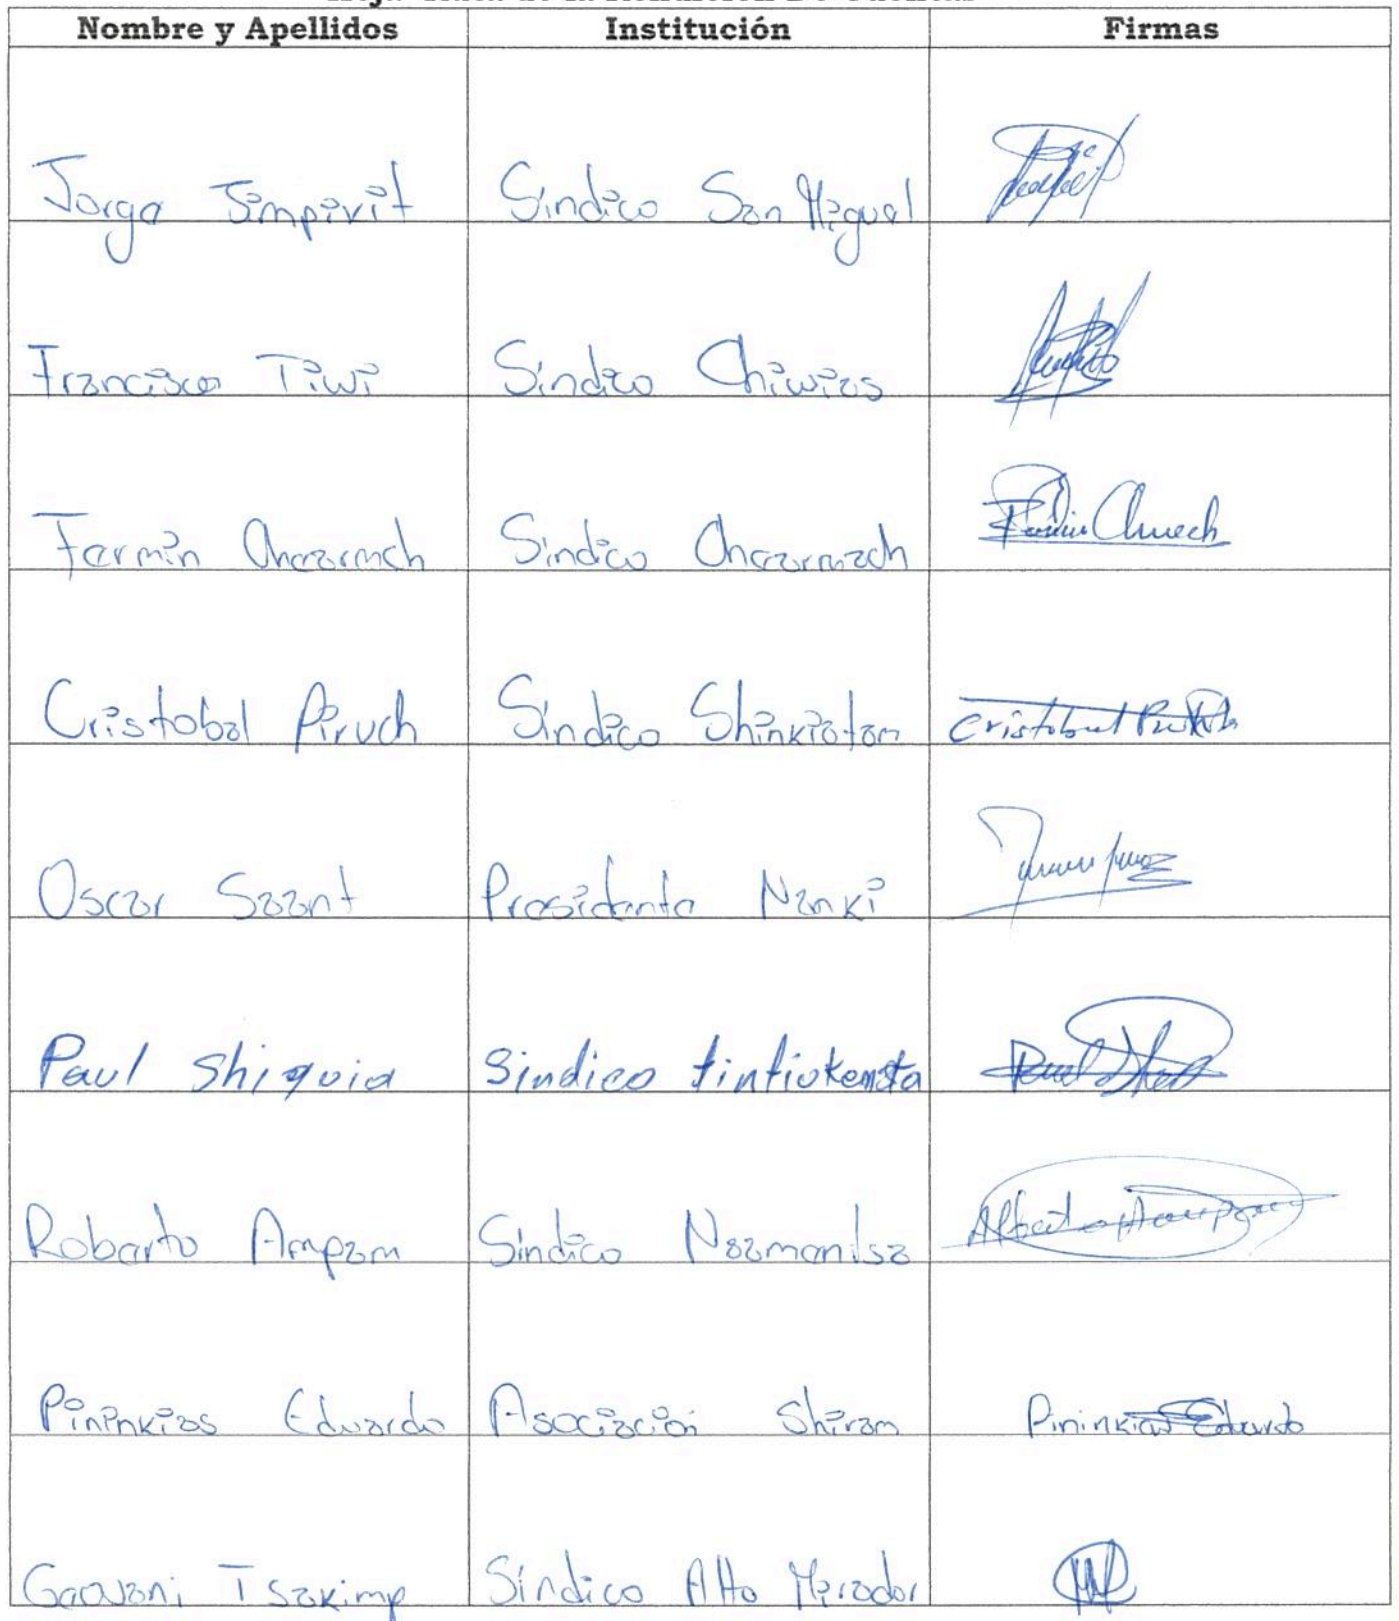 Nombre y Apellidos Institución Firmas
Jorge Jimpikit Síndico San Miguel
Francisco Tiwi Síndico Chiwias
Fermin Chaarmch Síndico Chaarmach
Cristobal Piruch Síndico Shinkiatam Cristobal
Oscar Saant Presidente Nanki
Paul Shiquia Sindico tintiukentsa Paul
Roberto Ampam Síndico Naamantsa Alberto Ampam
Pininkias Eduardo Asociación Shiram Pininkias Eduardo
Geovani Tsakimp Síndico Alto Mirador